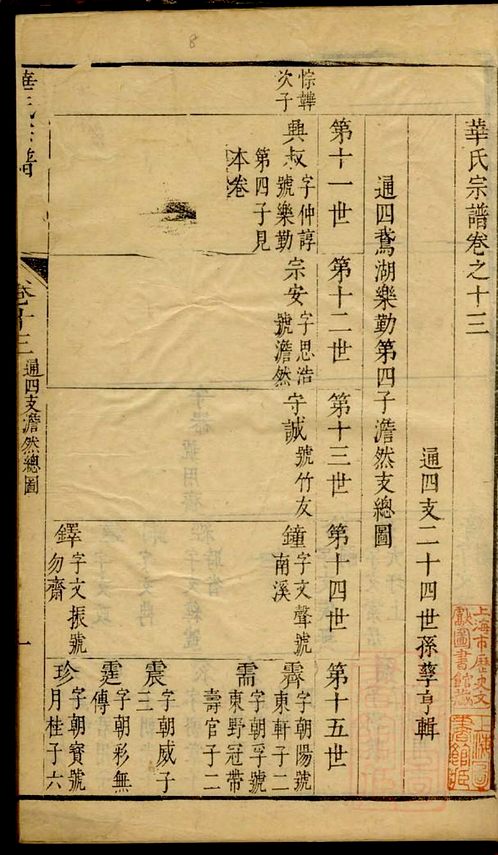 華氏宗譜卷之十三
通四支二十四世孫孳亨輯
通四鵞湖樂勤第四子澹然支總圖
第十一世
第十二世
第十三世
第十四世
第十五世
悰韡
次子
興叔
字仲諄
號樂勤
第四子見
本卷
宗安
字思浩
號澹然
守誠
號竹友
鐘
字文聲號
南溪
霽
字朝陽號
東軒子二
需
字朝孚號
東野冠帶
壽官子二
震
字朝威子
三
霆
字朝彩無
傳
鐸
字文振號
勿齋
珍
字朝寳號
月桂子六
華氏宗譜
卷十三
通四支澹然總圖
一
上海市歷史文
獻圖書館藏
8